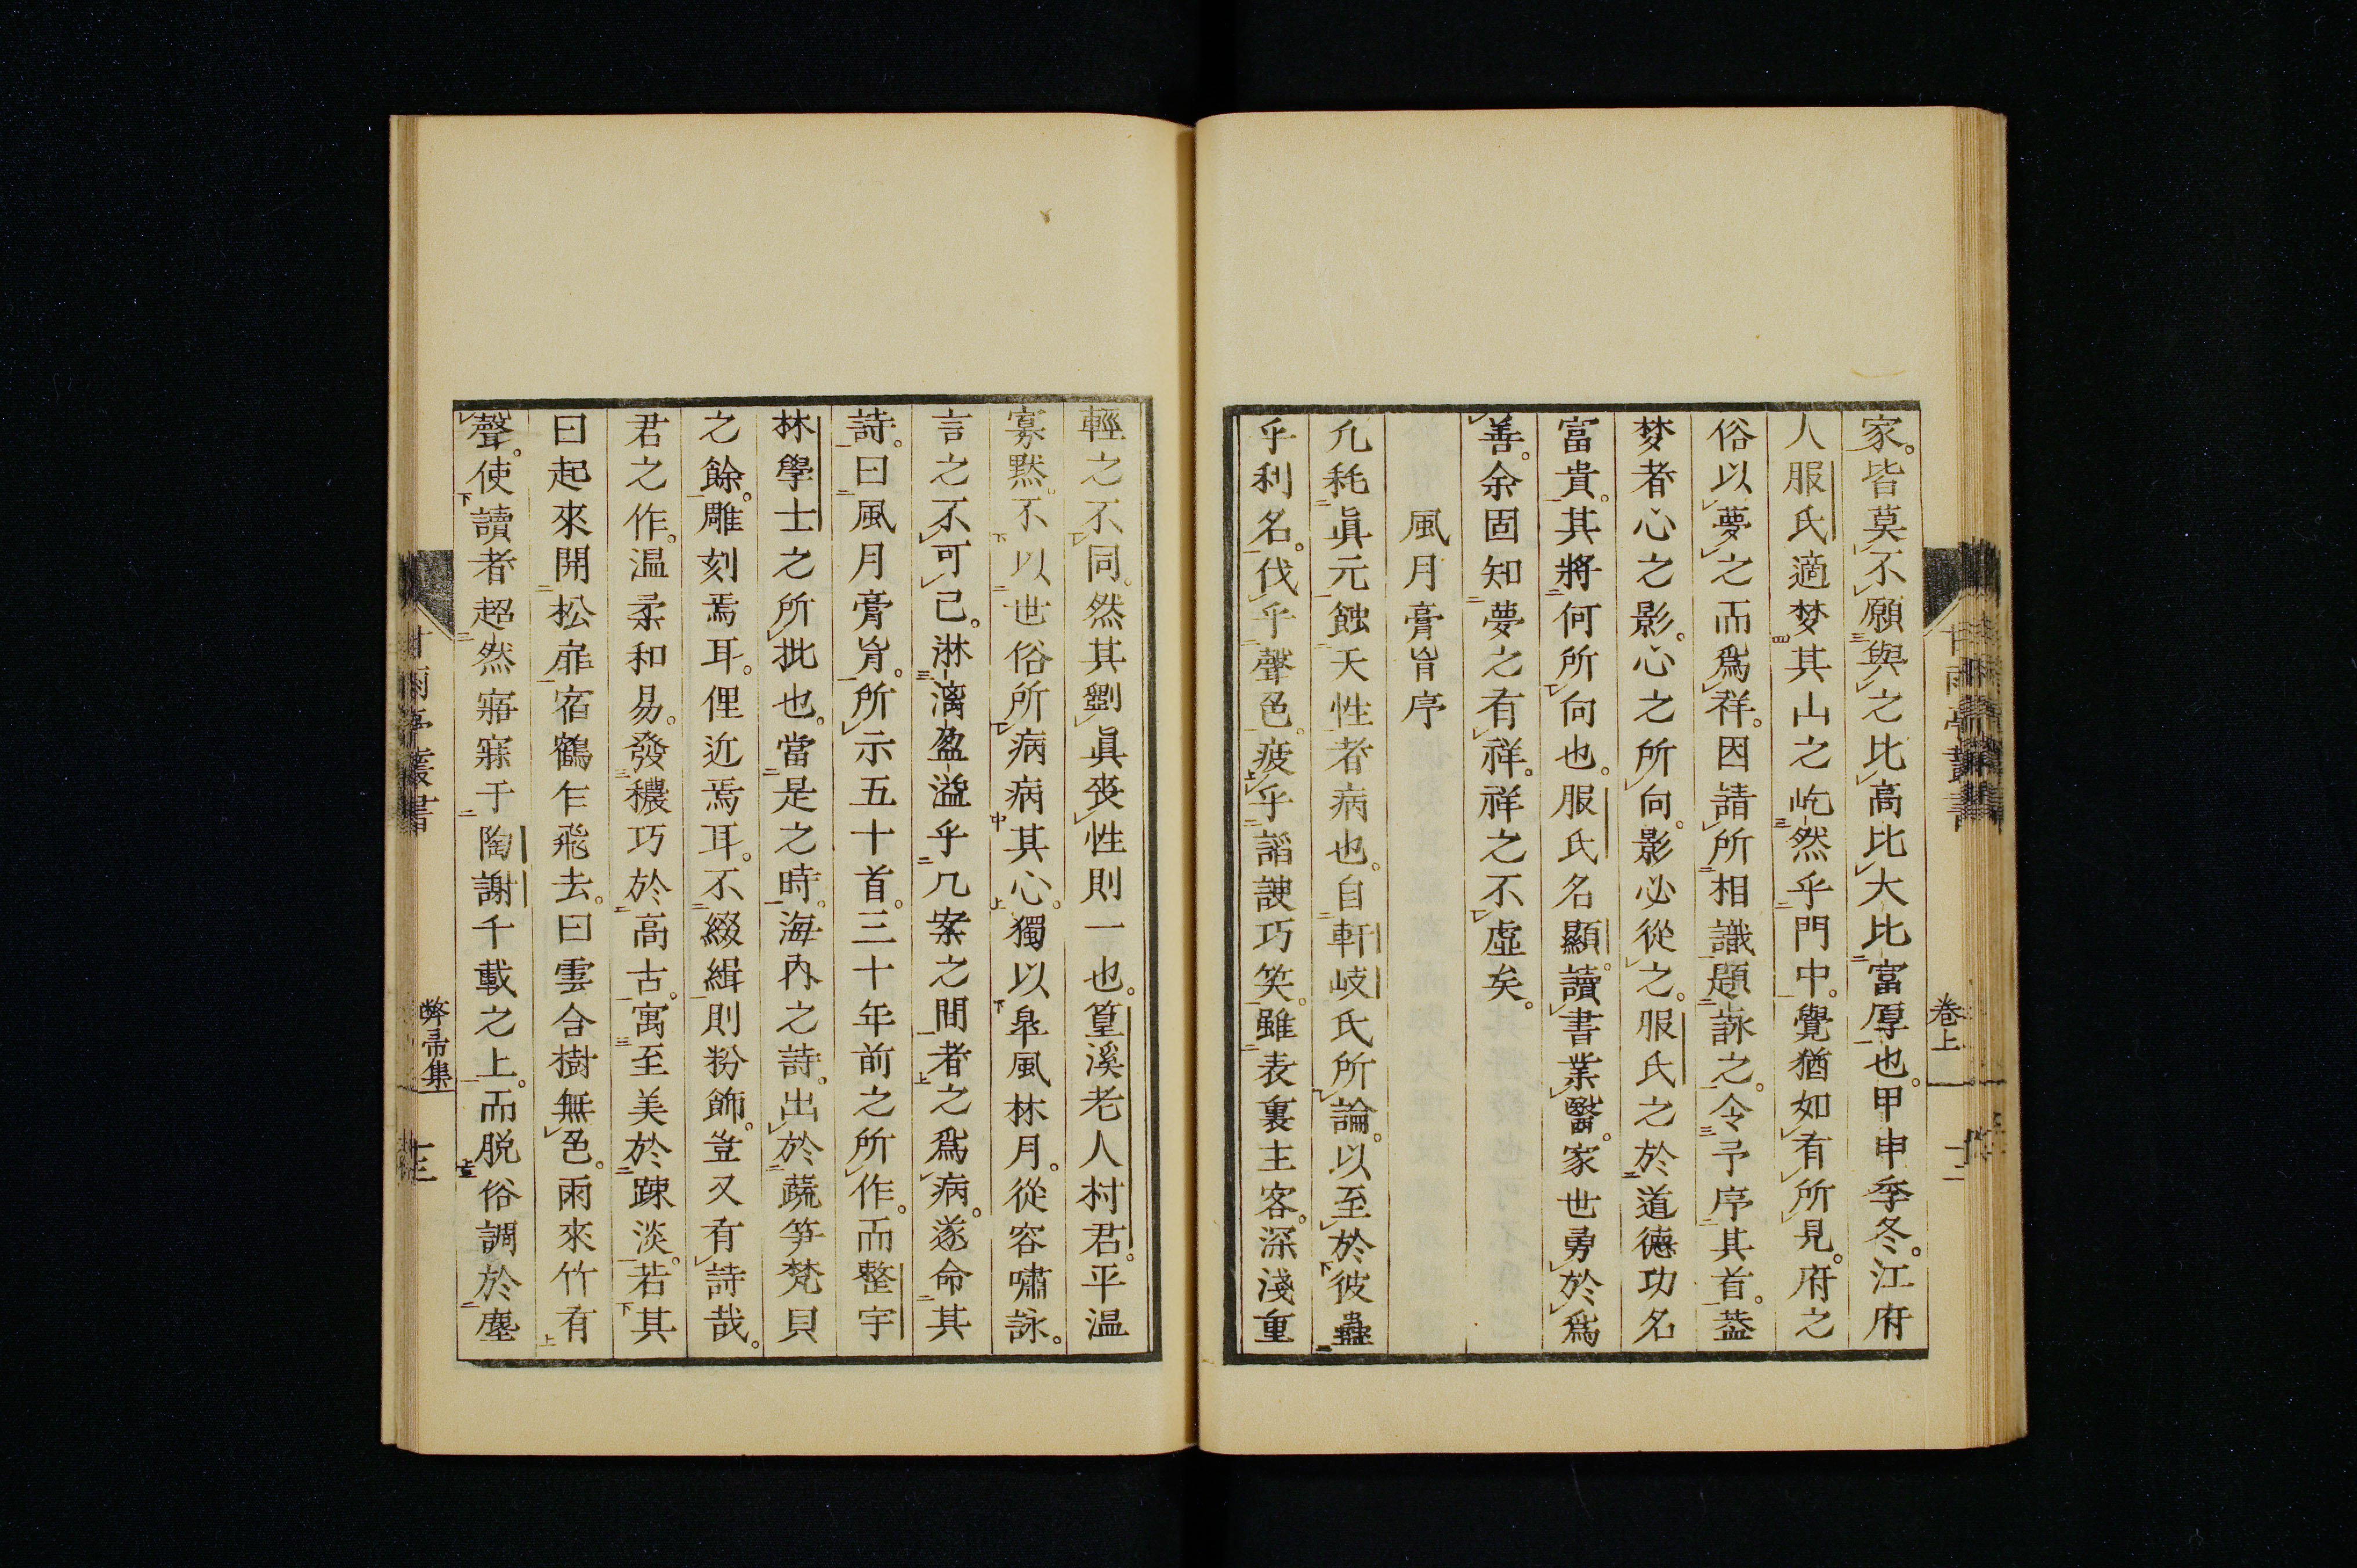 家。皆莫不願與之比高比大比富厚也。甲申季冬。江府
人服氏適梦其山之屹然乎門中。覺猶如有所見。府之
俗以夢之而爲祥。因請所相識題詠之。令予序其首。葢
梦者心之影。心之所向。影必從之。服氏之於道德功名
富貴。其將何所向也。服氏名顯。讀書業醫。家世勇於爲
善。余固知夢之有祥。祥之不虛矣。
風月膏肓序
凢耗眞元蝕天性者病也。自軒岐氏所論。以至於彼蠱
乎利名。伐乎聲色。疲乎諂諛巧笑。雖表裏主客。深淺重
甘雨亭叢書
卷上
十二
輕之不同。然其劉眞喪性則一也。篁溪老人村君。平温
寡黙。不以世俗所病病其心。獨以皐風林月。從容嘯詠。
言之不可已。淋漓盈溢乎几案之間者之爲病。遂命其
詩。曰風月膏肓。所示五十首。三十年前之所作。而整宇
林學士之所批也。當是之時。海內之詩。出於蔬笋梵貝
之餘。雕刻焉耳。俚近焉耳。不綴緝則粉飾。豈又有詩哉。
君之作。温柔和易。發穠巧於高古。寓至美於踈淡。若其
曰起來開松扉宿鶴乍飛去。曰雲合樹無色。雨來竹有
聲。使讀者超然寤寐于陶謝千載之上。而脱俗調於塵
甘雨亭叢書
弊帚集